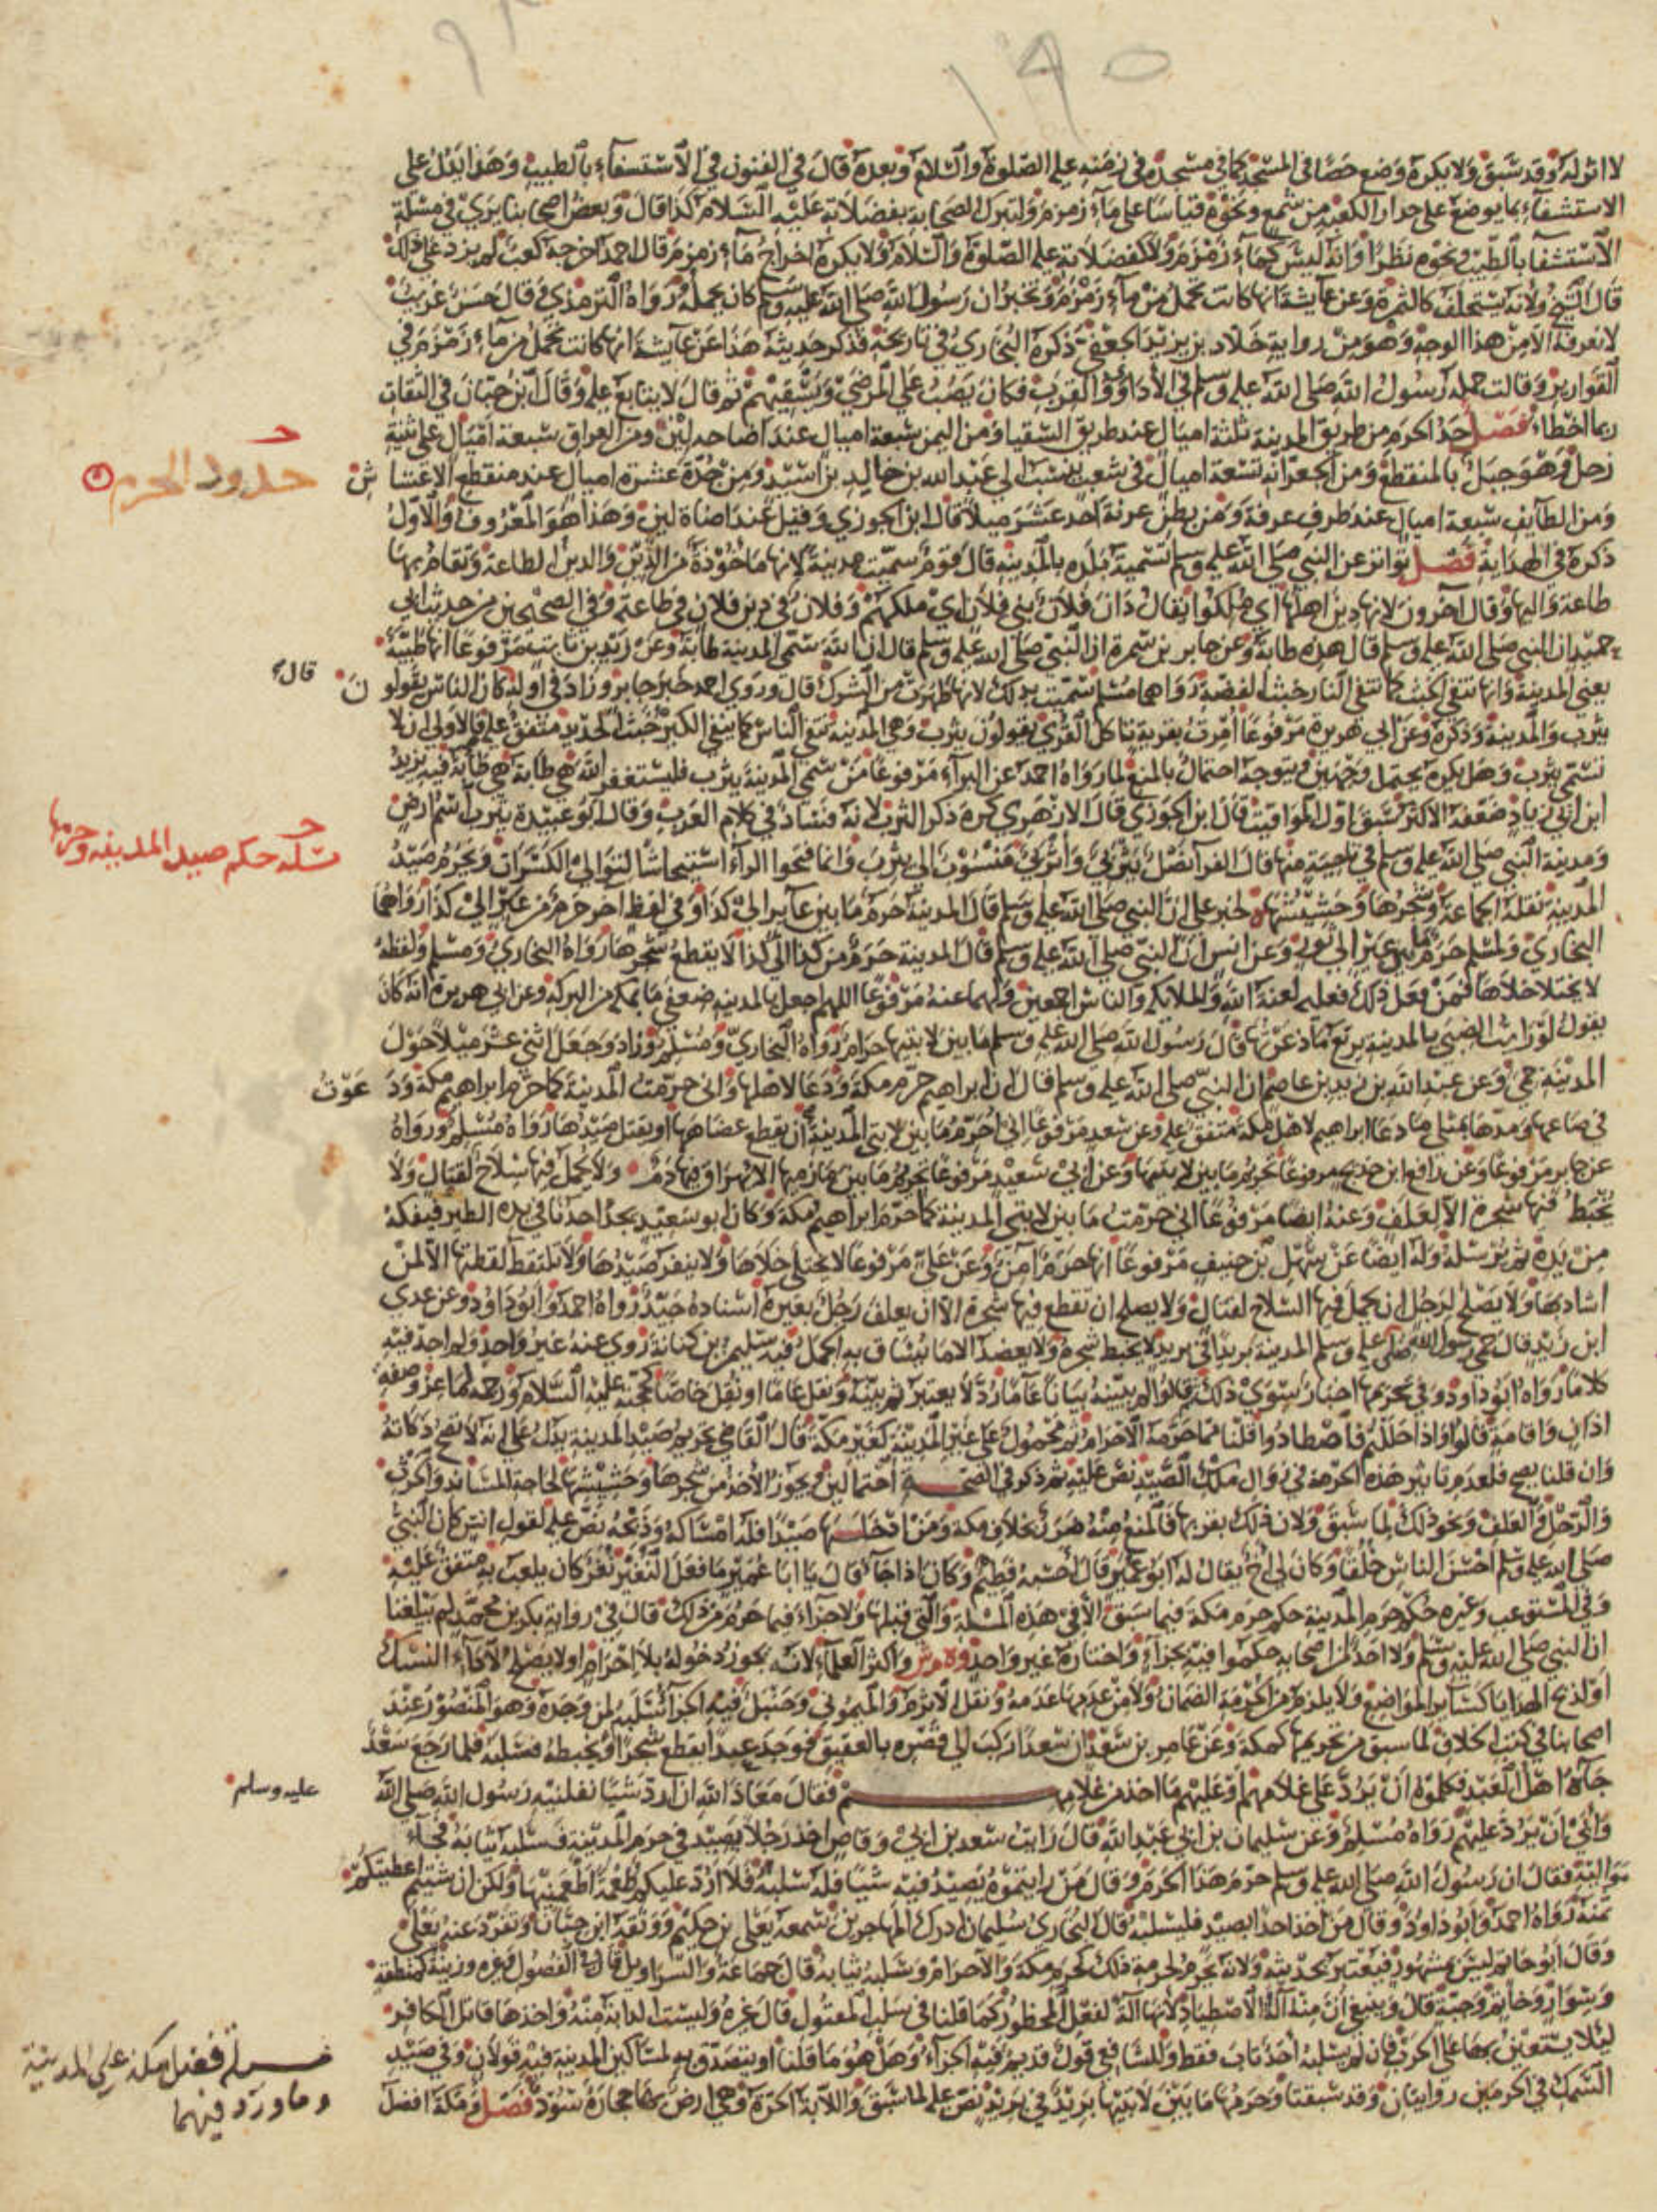 ٩٣
١٩٥
لا اثر له وقد سبق ولا يكره وضع حصا في المسجد كما في مسجده في زمنه عليه الصلوة والسلام وبعده قال في الفنون في الاستسفاء بالطيب وهذا يدل على
الاستشفاء بما يوضع على جدار الكعبة من شمع ونحوه قياسا على ماء زمزم ولتبرك الصحابة بفضلاته عليه السلام كذا قال وبعض اصحابنا يرى في مسئلة
الاستشفا بالطيب ونحوه نظرا وانه ليس كماء زمزم ولا كفضلاته عليه الصلوة والسلام ولا يكره اخراج ماء زمزم قال احمد اخرجه كعب لم يزد على ذلك
قال الشيخ ولانه يستخلف كالثمرة وعن عايشة انها كانت تحمل من ماء زمزم وتخبر ان رسول الله صلى الله عليه وسلم كان يحمله رواه الترمذي وقال حسن غريب
لا نعرفه الا من هذا الوجه وهو من رواية خلاد بن يزيد الجعفي ذكره البخاري في تاريخه فذكر حديثه هذا عن عايشة انها كانت تحمل من ماء زمزم في
القوارير وقالت حمله رسول الله صلى الله عليه وسلم في الاداوى والقرب فكان يصب على المرضى ويسقيهم ثم قال لا يتابع عليه وقال ابن حبان في الثقات
ربما اخطأ فصل حد الحرم من طريق المدينة ثلثة اميال عند طريق السقيا ومن اليمن سبعة اميال عند اضاه لبن ومن العراق سبعة اميال على ثنية
زحل وهو جبل بالمنقطع ومن الجعرانة تسعة اميال في شعب ينسب الى عبد الله بن خالد بن اسيد ومن جدة عشرة اميال عند منقطع الاعشاش
حدود الحرم
ومن الطايف سبعة اميال عند طرف عرفة ومن بطن عرنة احد عشر ميلا قال ابن الجوزي وقيل عند اضاة لبن وهذا هو المعروف والاول
ذكره في الهداية فصل تواتر عن النبي صلى الله عليه وسلم تسمية بلده بالمدينة قال قوم سميت مدينة لانها ماخوذة من الدين والدين الطاعة ويقام بها
طاعة واليها وقال آخرون لانها دين اهلها اي ملكوا يقال دان فلان بني فلان اي ملكهم وفلان في دين فلان في طاعته وفي الصحيحين من حديث ابي
حميد ان النبي صلى الله عليه وسلم قال هذه طابة وعن جابر بن سمرة ان النبي صلى الله عليه وسلم قال ان الله سمى المدينة طابة وعن زيد بن ثابت مرفوعا انها طيبة
يعني المدينة وانها تنفي الخبث كما تنفي النار خبث الفضة رواهما مسلم سميت بذلك لانها طهرت من الشرك قال وروى احمد خبر جابر وزاد في اوله كان الناس يقولون
قال
يثرب والمدينة وذكره وعن ابي هريرة مرفوعا امرت بقرية تاكل القرى يقولون يثرب وهي المدينة تنفي الناس كما ينفي الكير خبث الحديد متفق عليه فالاولى ان لا
تسمى يثرب وهل يكره يحتمل وجهين ويتوجه احتمال بالمنع لما رواه احمد عن البراء مرفوعا من سمى المدينة يثرب فليستغفر الله هي طابة هي طابة فيه يزيد
ابن ابي زياد ضعفه الاكثر وسبق اول المواقيت قال ابن الجوزي قال الازهري كره ذكر الثرب لانه فساد في كلام العرب وقال ابو عبيدة يثرب اسم ارض
ومدينة النبي صلى الله عليه وسلم في ناحية منها قال الفرا نصل يثربي واثربي منسوب الى يثرب وانما فتحوا الراء استيحاشا لتوالي الكسرات ويحرم صيد
مسئلة حكم صيد المدينة وحرمها
المدينة نقله الجماعة وشجرها وحشيشها لخبر علي ان النبي صلى الله عليه وسلم قال المدينة حرم ما بين عاير الى كذا وفي لفظ اخر حرم من عير الى كذا رواهما
البخاري ولمسلم حرم ما بين عير الى ثور وعن انس ان النبي صلى الله عليه وسلم قال المدينة حرم من كذا الى كذا لا يقطع شجرها رواه البخاري ومسلم ولفظه
لا يختلا خلاها فمن فعل ذلك فعليه لعنة الله والملائكة والناس اجمعين ولهما عنه مرفوعا اللهم اجعل بالمدينة ضعفي ما بمكة من البركة وعن ابي هريرة انه كان
يقول لو رايت الظبي بالمدينة يرتع ما ذعرتها قال رسول الله صلى الله عليه وسلم ما بين لابتيها حرام رواه البخاري ومسلم وزاد وجعل اثني عشر ميلا حول
المدينة حمى وعن عبد الله بن زيد بن عاصم ان النبي صلى الله عليه وسلم قال ان ابراهيم حرم مكة ودعا لاهلها واني حرمت المدينة كما حرم ابراهيم مكة ودعوت
في صاعها ومدها بمثلي ما دعا ابراهيم لاهل مكة متفق عليه وعن سعد مرفوعا اني احرم ما بين لابتي المدينة ان يقطع عضاهها او يقتل صيدها رواه مسلم ورواه
عن جابر مرفوعا وعن رافع ابن خديج مرفوعا تحريم ما بين لابتيها وعن ابي سعيد مرفوعا تحريم ما بين مازميها الا يهراق فيها دم ولا يحمل فيها سلاح لقتال ولا
يخبط فيها شجرة الا لعلف وعنه ايضا مرفوعا اني حرمت ما بين لابتي المدينة كما حرم ابراهيم مكة وكان ابو سعيد يجد احدنا في يده الطير فيفكه
من يده ثم يرسله وله ايضا عن سهل بن حنيف مرفوعا انها حرم آمن وعن علي مرفوعا لا يختلى خلاها ولا ينفر صيدها ولا تلتقط لقطتها الا لمن
اشاد بها ولا يصلح لرجل ان يحمل فيها السلاح لقتال ولا يصلح ان تقطع فيها شجرة الا ان يعلف رجل بعيره اسناده جيد رواه احمد وابو داود وعن عدي
ابن زيد قال حمى رسول الله صلى الله عليه وسلم المدينة بريدا في بريد لا يخبط شجره ولا يعضد الا ما يساق به الجمل فيه سليمن بن كنانة روى عنه غير واحد ولم اجد فيه
كلاما رواه ابو داود وفي تحريمها اخبار سوى ذلك قالوا لم يبينه بيانا عاما رد لا يعتبر ثم بينه ونقل عاما او نقل خاصا كحجته عليه السلام ورجمه لماعز وصفة
اذان واقامة قالوا واذا حللتم فاصطادوا قلنا مما حرمه الاحرام ثم محمول على غير المدينة كغير مكة قال القاضي تحريم صيد المدينة يدل على انه لا تصح ذكاته
وان قلنا يصح فلعدم تاثير هذه الحرمة في زوال ملك الصيد نص عليه ثم ذكر في الصحة احتمالين ويجوز الاخذ من شجرها وحشيشها لحاجة المساند والحرث
والرحل والعلف ونحو ذلك لما سبق ولان ذلك بقربها فالمنع منه ضرر بخلاف مكة ومن ادخلها صيدا فله امساكه وذبحه نص عليه لقول انس كان النبي
صلى الله عليه وسلم احسن الناس خلقا وكان لي اخ يقال له ابو عمير قال احسبه فطيم وكان اذا جاء قال يا ابا عمير ما فعل النغير نغر كان يلعب به متفق عليه
وفي المستوعب وغيره حكم حرم المدينة حكم حرم مكة فيما سبق الا في هذه المسلة والتي قبلها ولا جزاء فيما حرم من ذلك قال في رواية بكر بن محمد لم يبلغنا
ان النبي صلى الله عليه وسلم ولا احدا من اصحابه حكموا فيه بجزاء واختاره غير واحد وه م ش واكثر العلماء لانه يجوز دخوله بلا احرام ولا يصلح لاداء النسك
او لذبح الهدايا كساير المواضع ولا يلزم من الحرمة الضمان ولا من عدمها عدمه ونقل الاثرم والميموني وحنبل فيه الجزاء سلبه لمن وجده وهو المنصور عند
اصحابنا في كتب الخلاف لما سبق من تحريمها كمكة وعن عامر بن سعد ان سعدا ركب الى قصره بالعقيق فوجد عبدا يقطع شجرا او يخبطه فسلبه فلما رجع سعد
جاءه اهل العبد فكلموه ان يرد على غلامهم او عليهم ما اخذ من غلامهم فقال معاذ الله ان ارد شيئا نفلنيه رسول الله صلى الله
عليه وسلم
وابى ان يرد عليهم رواه مسلم وعن سليمان بن ابي عبد الله قال رايت سعد بن ابي وقاص اخذ رجلا يصيد في حرم المدينة فسلبه ثيابه فجاء
مواليه فقال ان رسول الله صلى الله عليه وسلم حرم هذا الحرم وقال من رايتموه يصيد فيه شيئا فله سلبه فلا ارد عليكم طعمة اطعمنيها ولكن ان شئتم اعطيتكم
ثمنه رواه احمد وابو داود وقال من اخذ احدا يصيد فليسلبه قال البخاري سليمان ادرك المهاجرين سمعه يعلى بن حكيم ووثقه ابن حبان وتفرد عنه يعلى
وقال ابو حاتم ليس بمشهور فيعتبر بحديثه ولانه يحرم لحرمة ذلك كحرم مكة والاحرام وسلبه ثيابه قال جماعة والسراويل قال في الفصول وغيره وزينة كمنطقة
وسوار وخاتم وجبة قال وينبغي ان منه آلة الاصطياد لانها آلة لفعل المحظور كما قلنا في سلب المقتول قال غيره وليست الدابة منه واخذها قاتل الكافر
ليلا يستعين بها على الحرب فان لم يسلبه احد تاب فقط وللشافعي قول قديم فيه الجزاء وهل هو ما قلنا او يتصدق به لمساكين المدينة فيه قولان وفي صيد
السمك في الحرمين روايتان وقد سبقتا وحرمها ما بين لابتيها بريد في بريد نص عليه لما سبق واللابة الحرة وهي ارض بها حجارة سود فصل ومكة افضل
مسئلة فضل مكة على المدينة
وما ورد فيهما